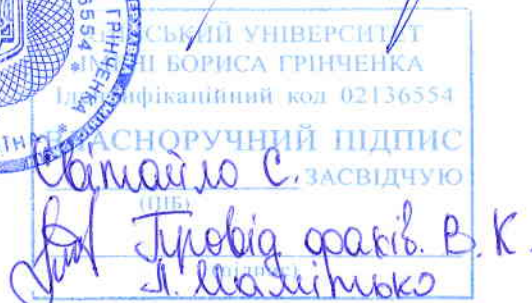 ГРІНЧЕНКА
УНІВЕРСИТЕТ
ІМЕНІ БОРИСА ГРІНЧЕНКА
Ідентифікаційний код 02136554
ВЛАСНОРУЧНИЙ ПІДПИС
Світайло С. ЗАСВІДЧУЮ
(ПІБ)
Провід. фахів. В.К.
(підпис)